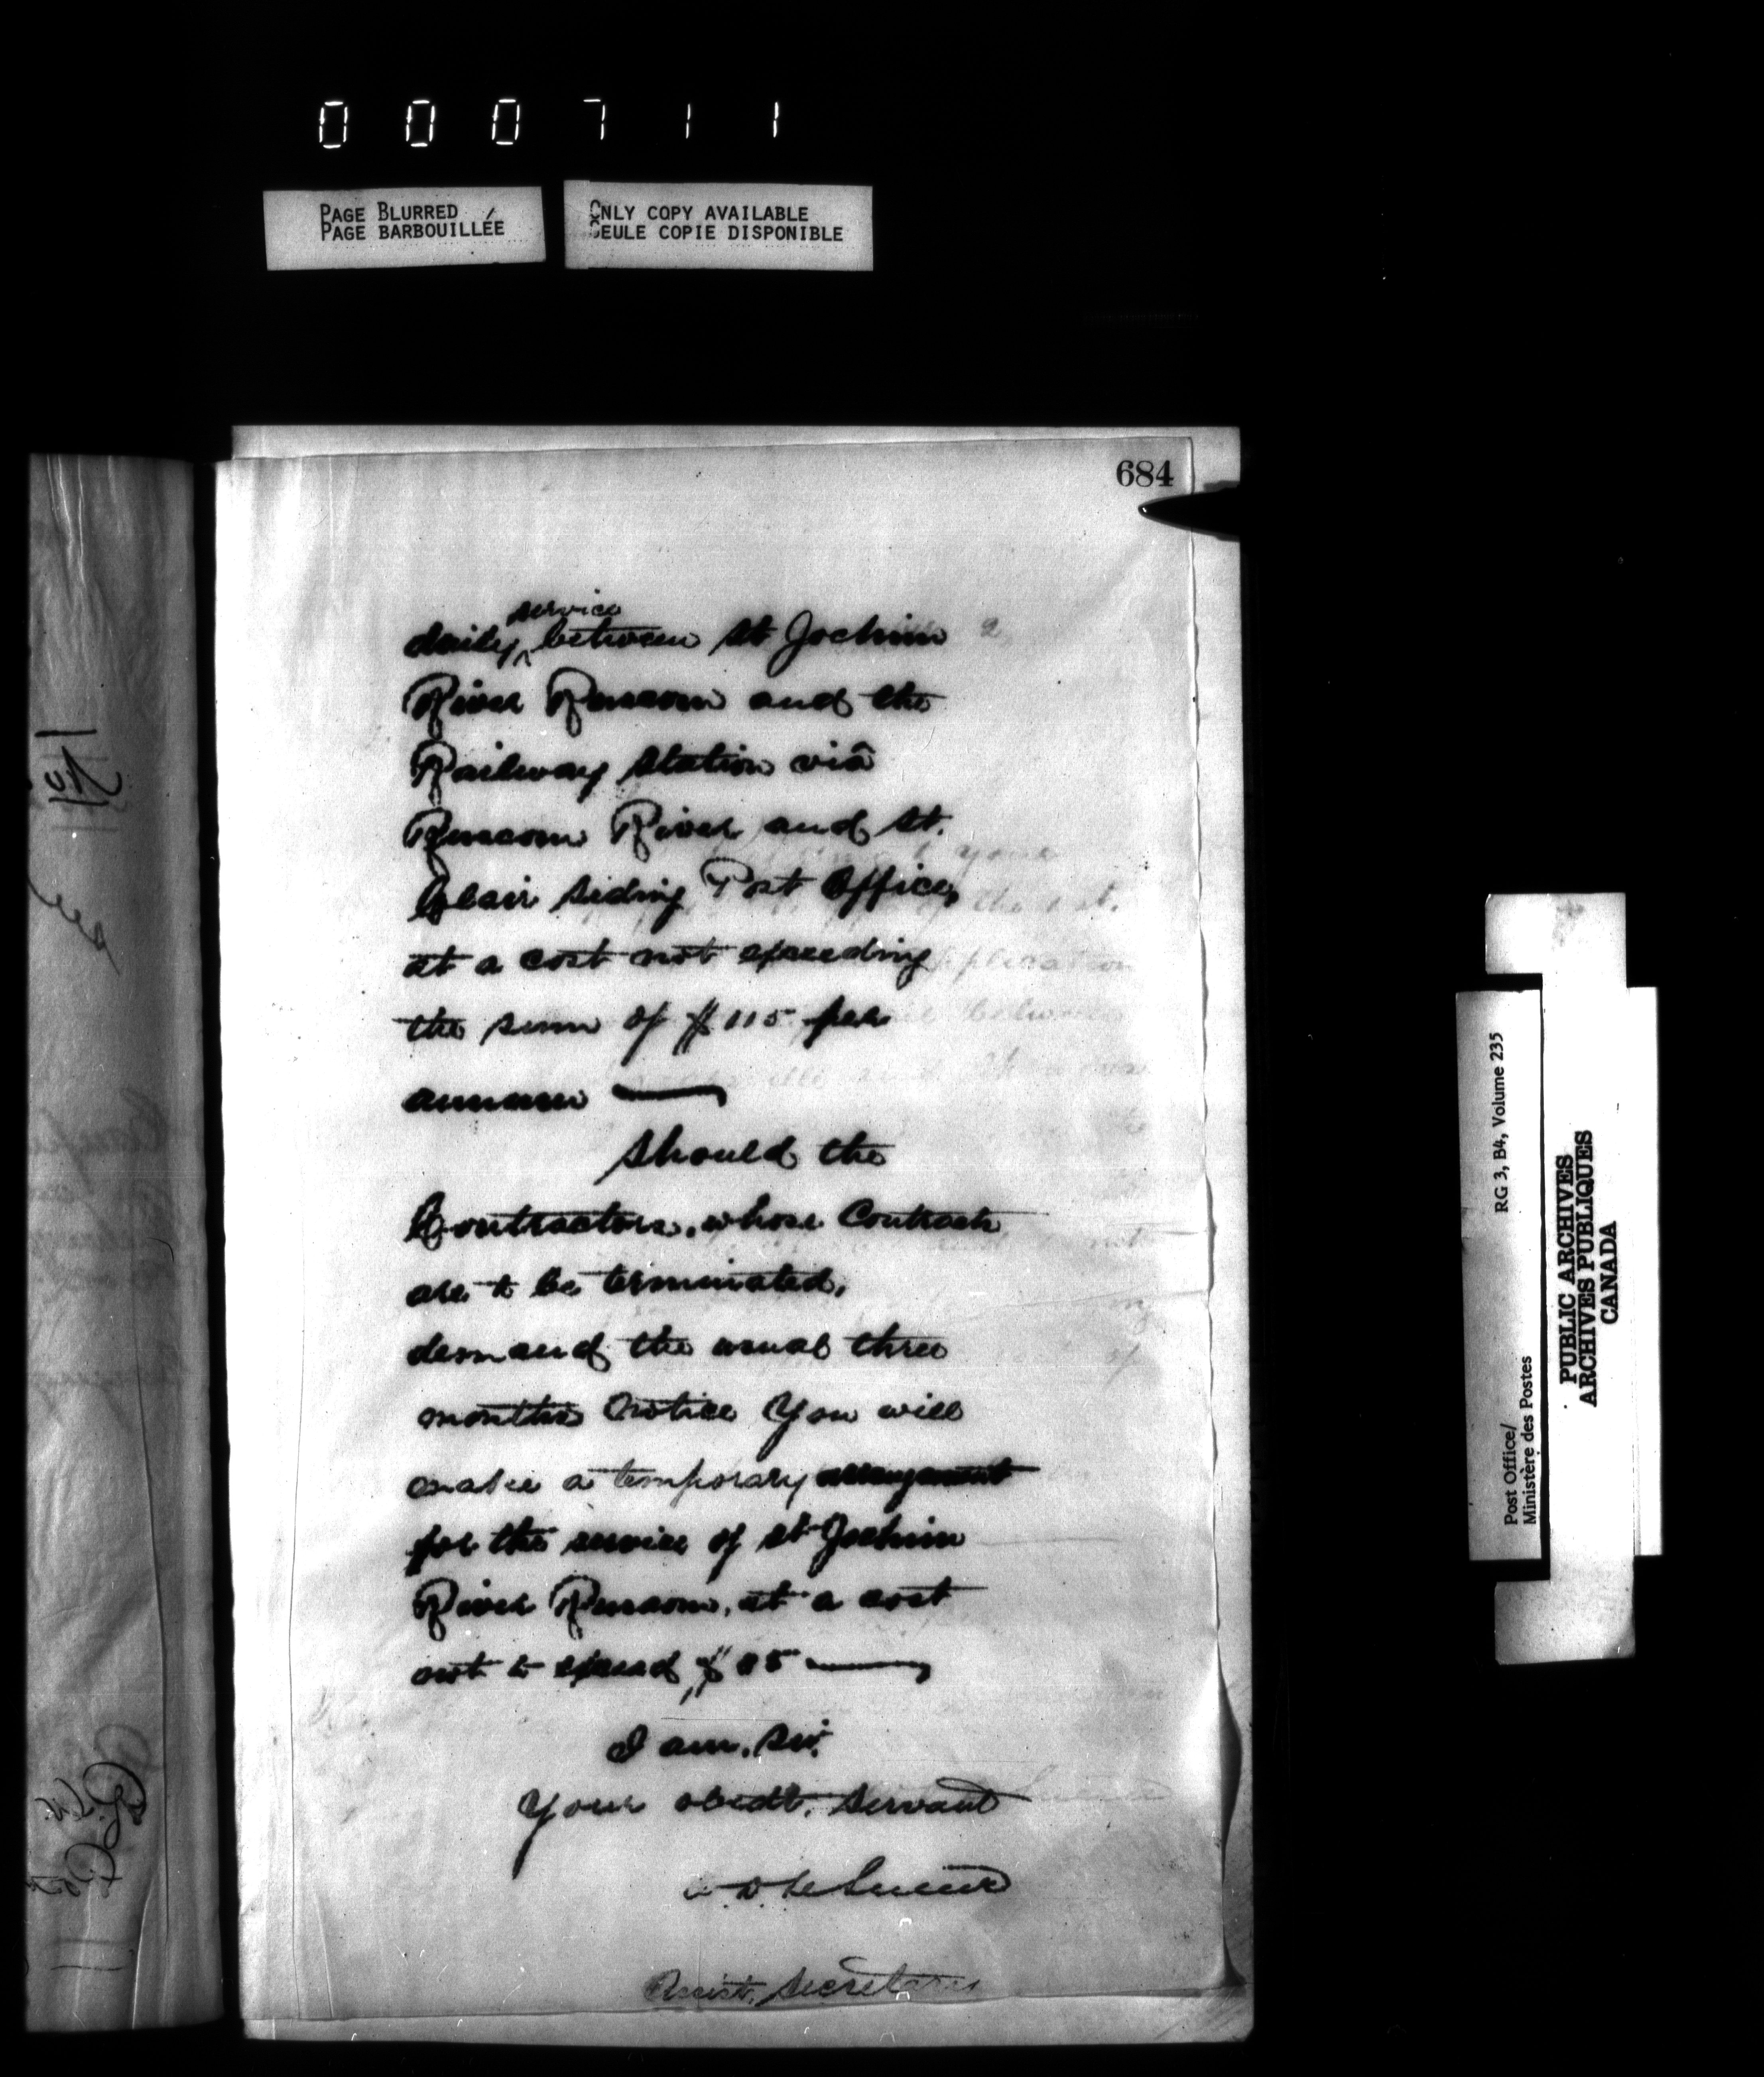 000711
PAGE BLURRED
PAGE BARBOUILLÉE
ONLY COPY AVAILABLE
SEULE COPIE DISPONIBLE
684
service
daily between St Jochim
River Ruscom and the
Railway Station viâ
Ruscom River and St.
Clair Siding Post Office,
at a cost not exceeding
the sum of $115 per
annum
Should the
Contractors, whose Contracts
are to be terminated,
demand the usual three
months notice you will
make a temporary arrangement
for the service of St Jochim
River Ruscom, at a cost
not to exceed
I am, Sir,
Your obedt. Servant
W.D. LeSueur
Assist. Secretary
RG 3, B4, Volume 235
Post Office/
Ministère des Postes
PUBLIC ARCHIVES
ARCHIVES PUBLIQUES
CANADA